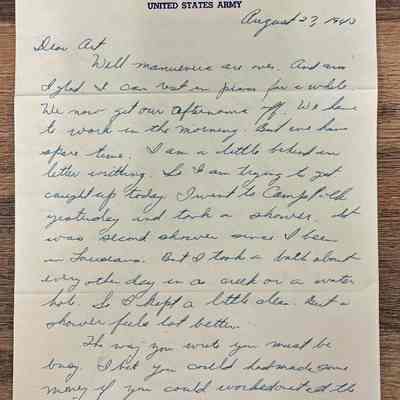 UNITED STATES ARMY
August 27, 1943
Dear Art
Well manuevers are over. And am
I glad I can rest in peace for a while
We now get our afternoons off. We have
to work in the morning. But we have
spare time. I am a little behind in
letter writhing. So I am trying to get
caught up today. I went to Camp Polk
yesterday and took a shower. It
was second shower since I been
in Louisiana. But I took a bath about
every other day in a creek or a water
hole. So I kept a little clean. But a
shower feels lot better.
The way you write you must be
busy. I bet you could had made some
money if you could worked out at the